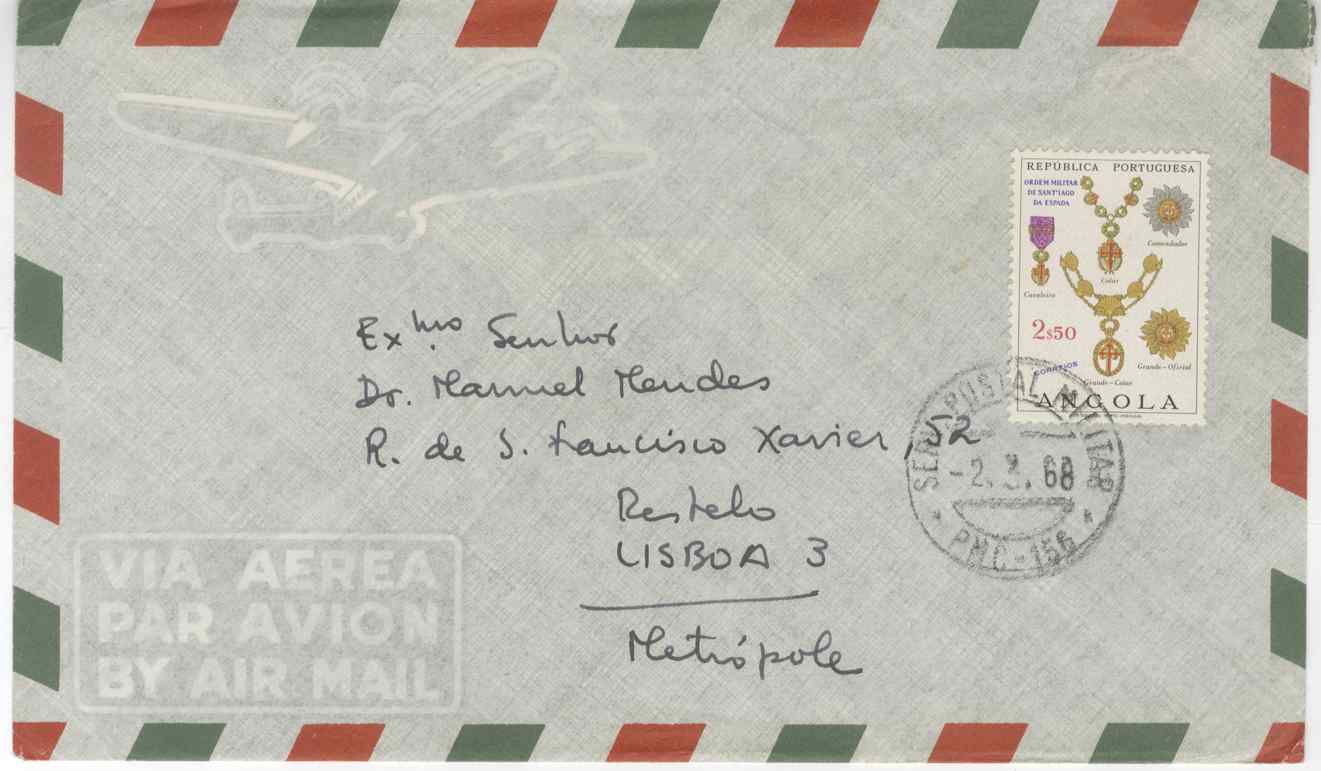 REPÚBLICA PORTUGUESA
ORDEM MILITAR
DE SANT'IAGO
DA ESPADA
Comendador
Colar
Cavaleiro
2$50
Grande-Oficial
CORREIOS
Grande-Colar
ANGOLA
Exmo. Senhor
Dr. Manuel Mendes
R. de S. Francisco Xavier, 52
Restelo
LISBOA 3
Metrópole
SERV. POSTAL MILITAR
-2. 3. 68
* PMC-156 *
VIA AEREA
PAR AVION
BY AIR MAIL